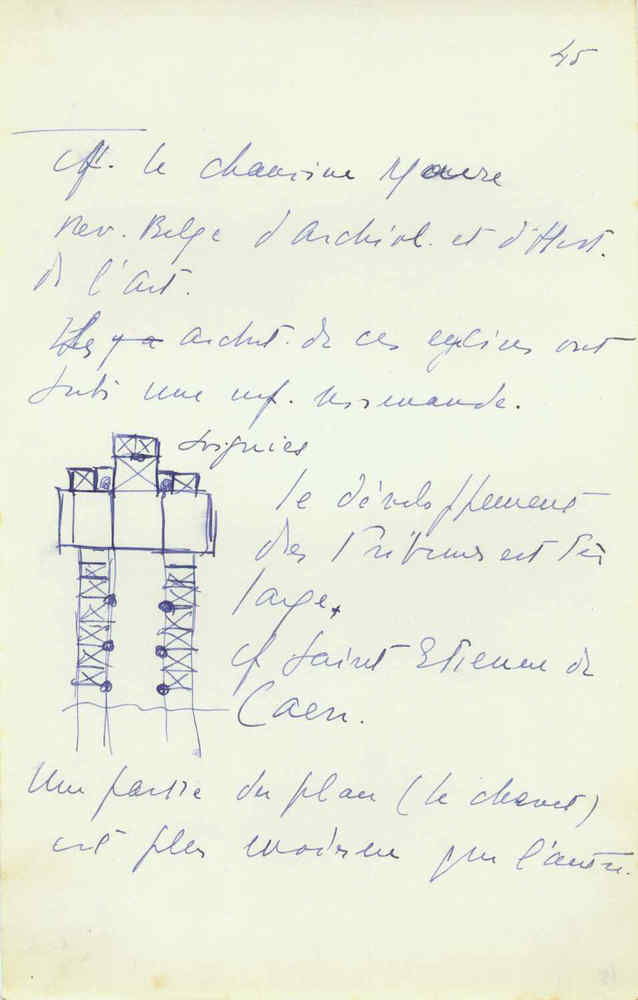 45
cf. le chanoine Maere
Rev. Belge d'Archéol. et d'Hist.
de l'art.
archit. de ces eglises ont
subi une inf. normande.
Soignies
le développement
des Tribunes est très
large.
cf Saint Etienne de
Caen.
Une partie du plan (le chevet)
est plus moderne que l'autre.